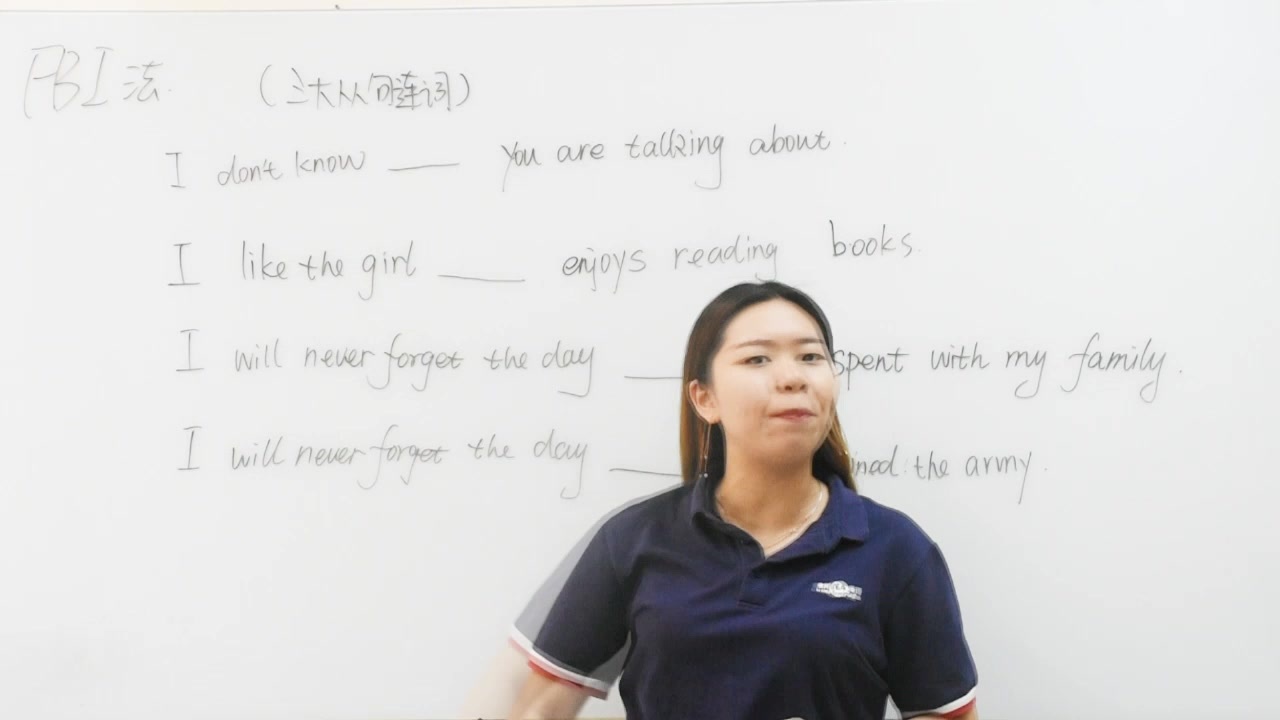 PBI法. （三大从句连词）
I don't know ___ you are talking about.
I like the girl ___ enjoys reading books.
I will never forget the day ___ spent with my family.
I will never forget the day ___ the army.